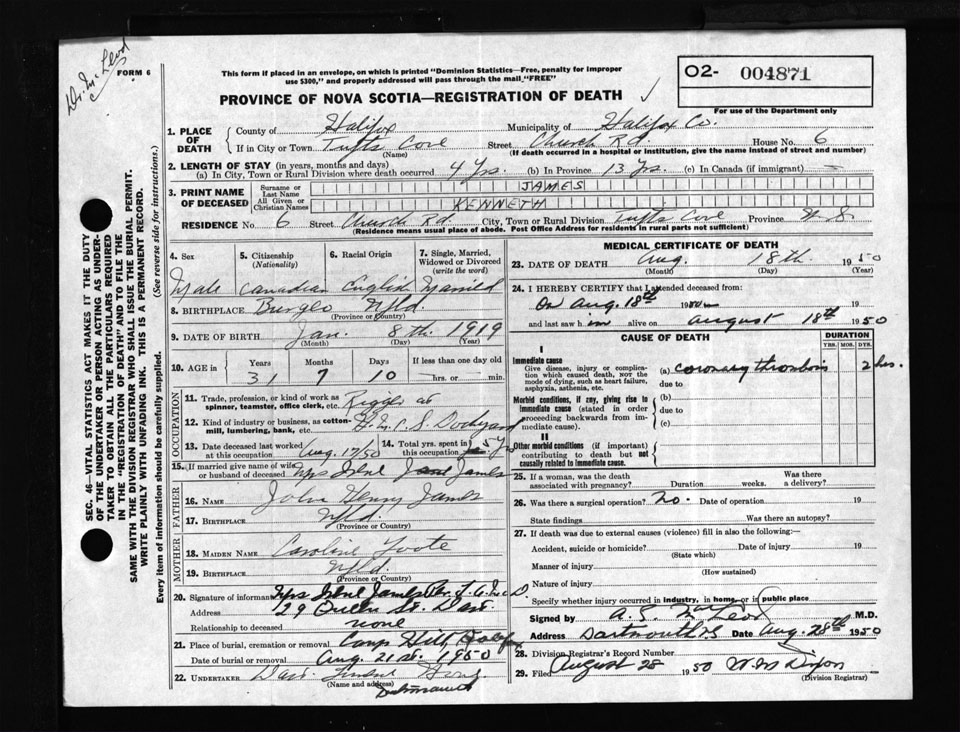 Dr. McLeod
FORM 6
This form if placed in an envelope, on which is printed "Dominion Statistics—Free, penalty for improper
use $300," and properly addressed will pass through the mail "FREE"
PROVINCE OF NOVA SCOTIA—REGISTRATION OF DEATH
O2- 004871
For use of the Department only
1. PLACE OF DEATH County of Halifax Municipality of Halifax Co.
If in City or Town Tufts Cove (Name) Street Church Rd. House No. 6
(If death occurred in a hospital or institution, give the name instead of street and number)
2. LENGTH OF STAY (in years, months and days)
(a) In City, Town or Rural Division where death occurred 4 Yrs. (b) In Province 13 Yrs. (c) In Canada (if immigrant) —
3. PRINT NAME OF DECEASED Surname or Last Name JAMES
All Given or Christian Names KENNETH
RESIDENCE No. 6 Street Church Rd. City, Town or Rural Division Tufts Cove Province N.S.
(Residence means usual place of abode. Post Office Address for residents in rural parts not sufficient)
4. Sex 5. Citizenship (Nationality) 6. Racial Origin 7. Single, Married, Widowed or Divorced (write the word)
Male Canadian English Married
8. BIRTHPLACE Burgeo Nfld.
(Province or Country)
9. DATE OF BIRTH Jan. 8th. 1919
(Month) (Day) (Year)
10. AGE in Years Months Days If less than one day old
31 7 10 hrs. or min.
OCCUPATION
11. Trade, profession, or kind of work as spinner, teamster, office clerk, etc. Rigger at
12. Kind of industry or business, as cotton-mill, lumbering, bank, etc. H.M.C.S. Dockyard
13. Date deceased last worked at this occupation Aug. 17/50 14. Total yrs. spent in this occupation 5 Y
15. (If married give name of wife or husband of deceased Mrs Irene James
FATHER
16. NAME John Henry James
17. BIRTHPLACE Nfld.
(Province or Country)
MOTHER
18. MAIDEN NAME Caroline
19. BIRTHPLACE Nfld.
(Province or Country)
20. Signature of informant Mrs Irene James
Address 129 Queen St. Dart.
Relationship to deceased none
21. Place of burial, cremation or removal Camp Hill, Halifax
Date of burial or removal Aug. 21 st. 1950
22. UNDERTAKER Dart.
(Name and address) Dartmouth
MEDICAL CERTIFICATE OF DEATH
23. DATE OF DEATH Aug. 18th. 1950
(Month) (Day)
24. I HEREBY CERTIFY that I attended deceased from:
On Aug. 18th 19
and last saw him alive on August 18th 1950
CAUSE OF DEATH DURATION
YRS. MOS. DYS.
I
Immediate cause
Give disease, injury or complication which caused death, NOT the mode of dying, such as heart failure, asphyxia, asthenia, etc.
(a) coronary thrombosis 2 hrs.
due to
Morbid conditions, if any, giving rise to immediate cause (stated in order proceeding backwards from immediate cause).
(b)
due to
(c)
II
Other morbid conditions (if important) contributing to death but not causally related to immediate cause.
25. If a woman, was the death associated with pregnancy? Duration weeks. Was there a delivery?
26. Was there a surgical operation? No. Date of operation 19
State findings Was there an autopsy?
27. If death was due to external causes (violence) fill in also the following:—
Accident, suicide or homicide? Date of injury 19
(State which)
Manner of injury
(How sustained)
Nature of injury
Specify whether injury occurred in industry, in home, or in public place
Signed by A. S. MacLeod M.D.
Address Dartmouth NS Date Aug. 28th 1950
28. Division Registrar's Record Number
29. Filed August 28 1950 W. M. Dixon
(Division Registrar)
SEC. 46—VITAL STATISTICS ACT MAKES IT THE DUTY
OF THE UNDERTAKER OR PERSON ACTING AS UNDER-
TAKER TO OBTAIN ALL THE PARTICULARS REQUIRED
IN THE "REGISTRATION OF DEATH" AND TO FILE THE
SAME WITH THE DIVISION REGISTRAR WHO SHALL ISSUE THE BURIAL PERMIT.
WRITE PLAINLY WITH UNFADING INK. THIS IS A PERMANENT RECORD.
Every item of information should be carefully supplied. (See reverse side for instructions.)